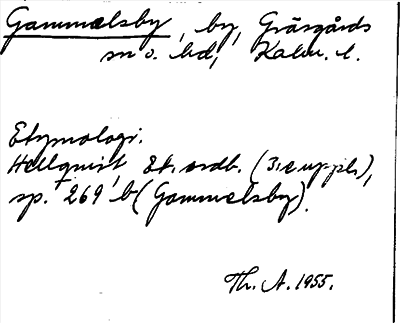 Gammelsby, by, Gräsgårds
sn o. hd, Kalm. l.
Etymologi.
Hellquist, Et. ordb. (3:e uppl.),
sp. 269 b (Gammelsby).
Th. A. 1955.